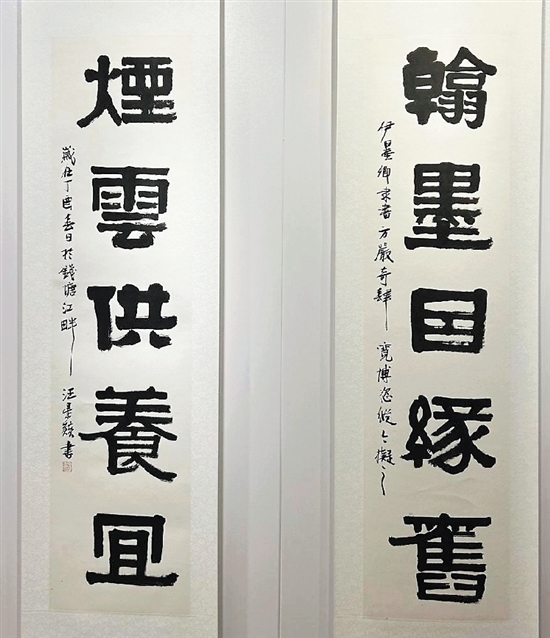 翰墨因緣舊
伊墨卿隶書方嚴奇肆寬博恣縱今擬之
煙雲供養宜
歲在丁酉春日於錢塘江畔汪景書